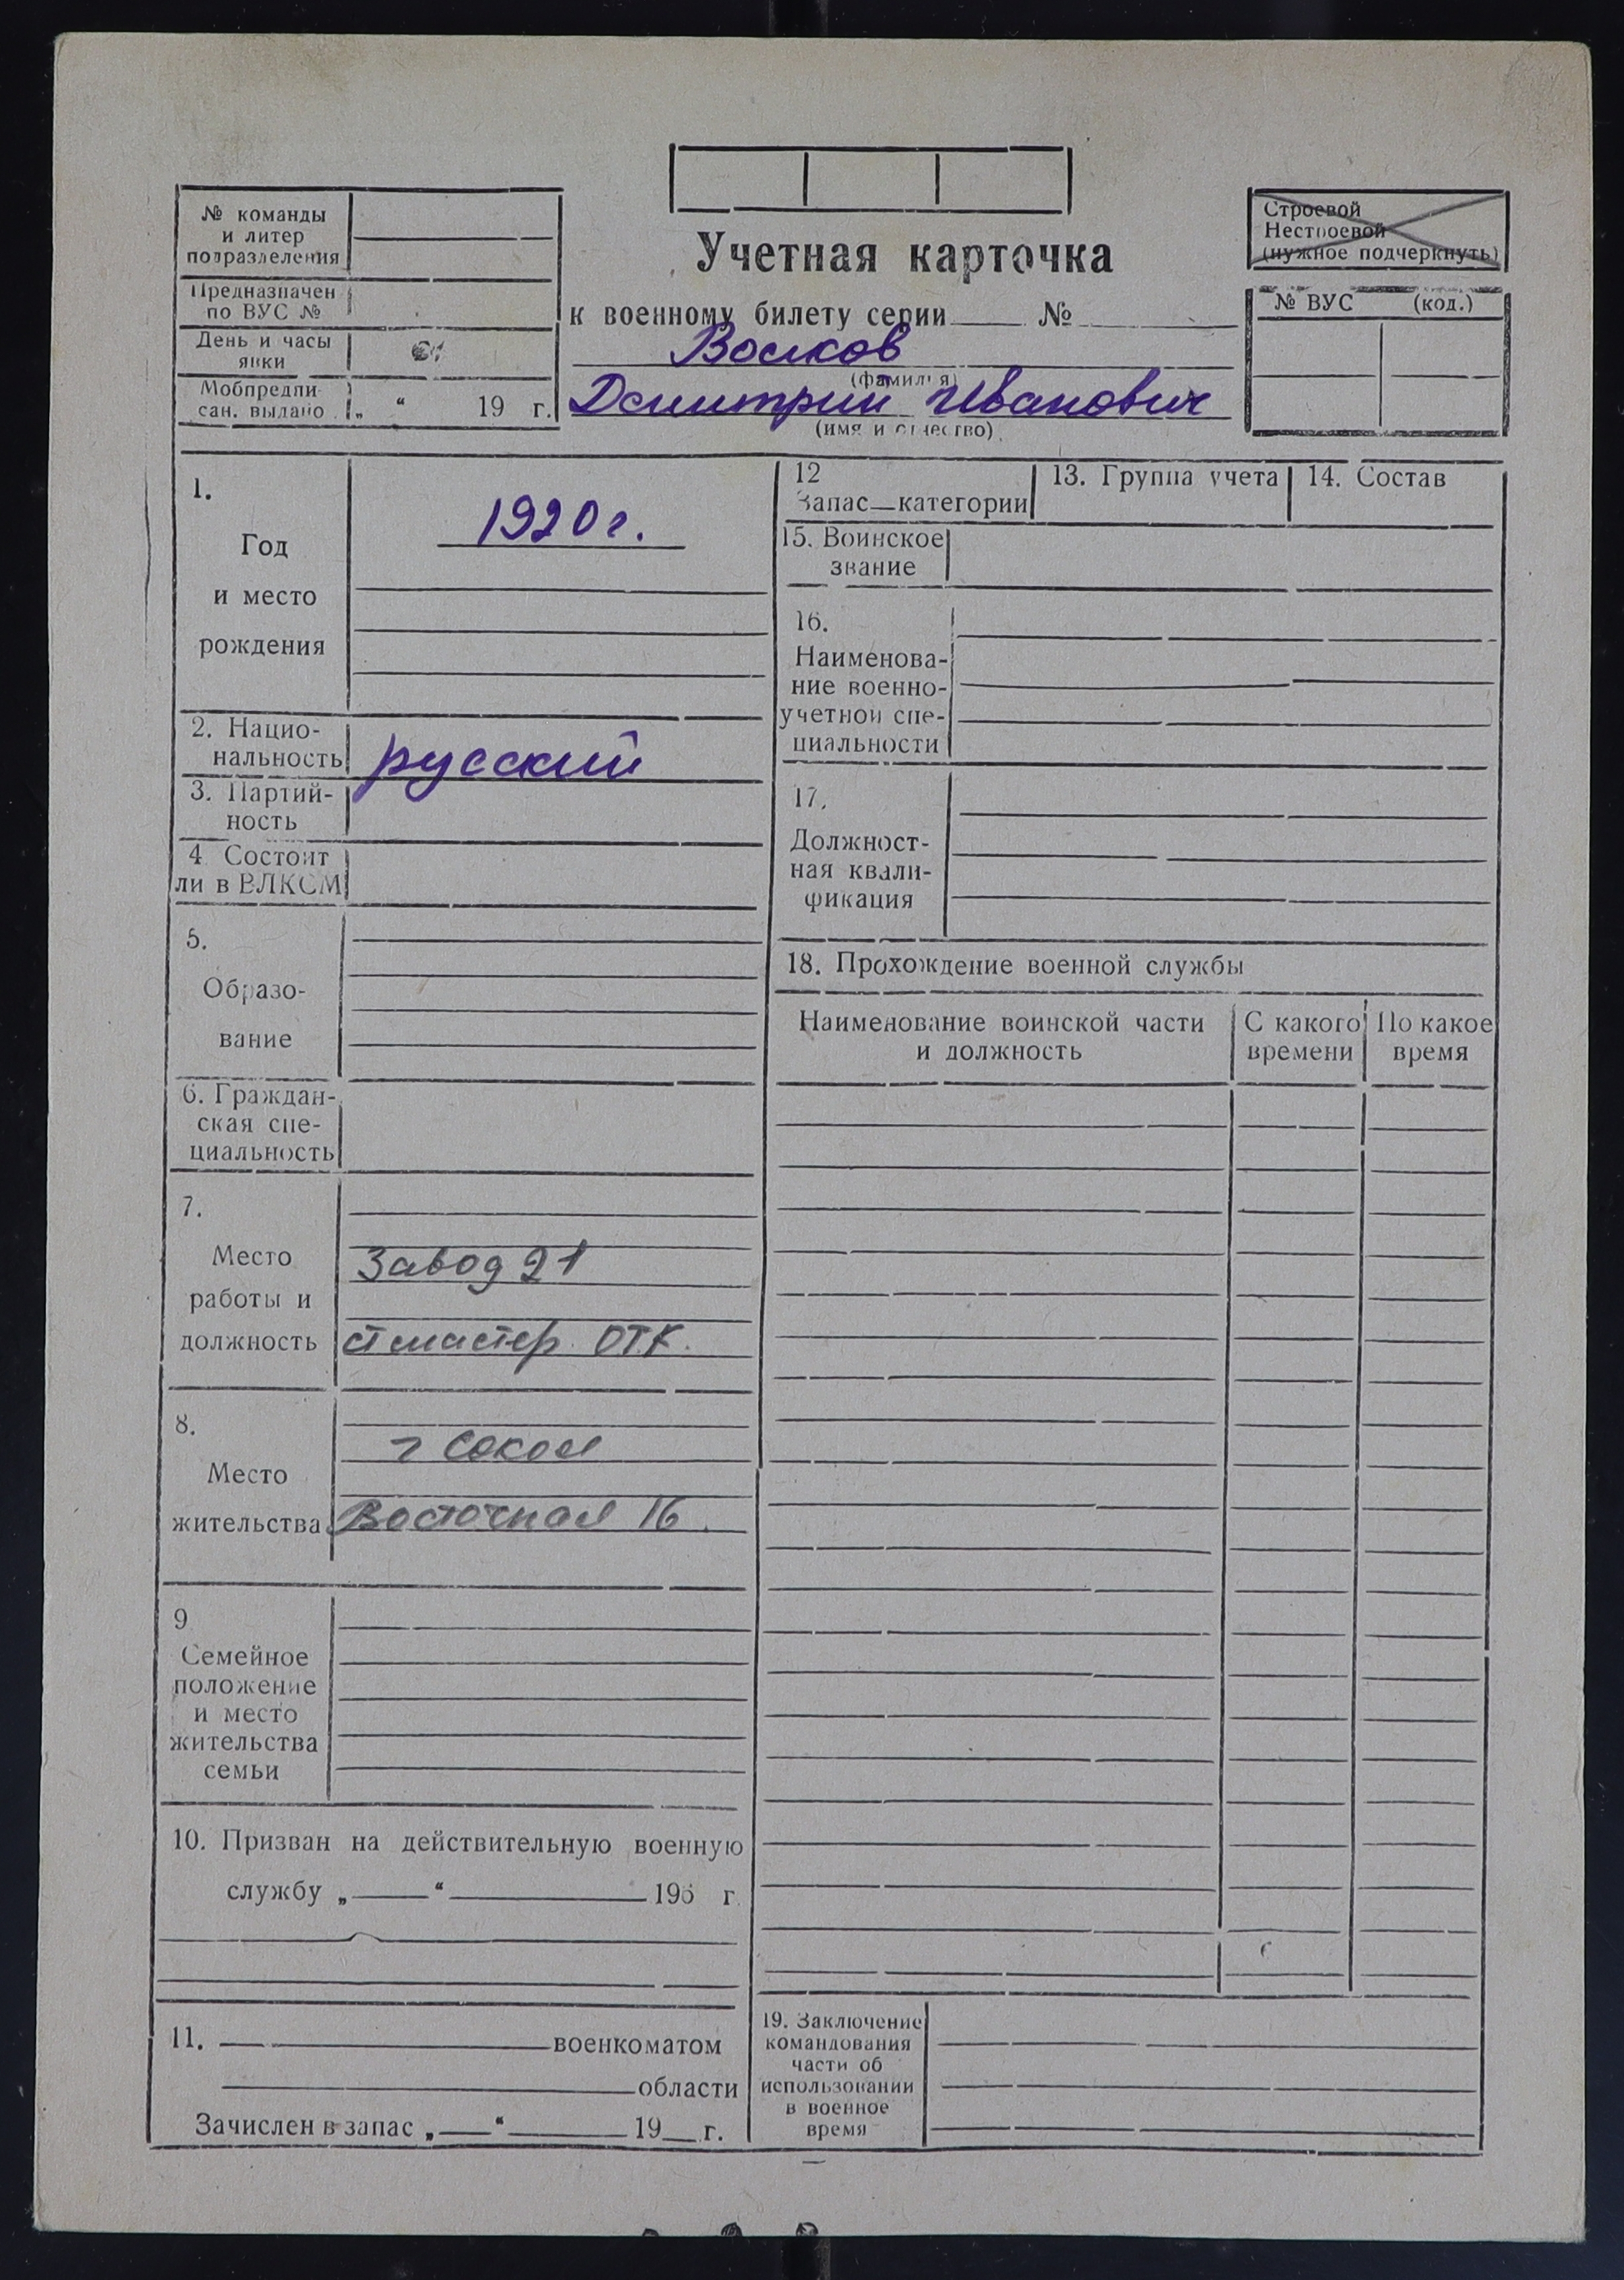 № команды
и литер
подразделения
Предназначен
по ВУС №
День и часы
явки
Мобпредпи-
сан. выдано „ “ 19 г.
Учетная карточка
к военному билету серии № 
Волков
(фамилия)
Дмитрий Иванович
(имя и отчество)
Строевой
Нестроевой
(нужное подчеркнуть)
№ ВУС (код.)
1.
Год
и место
рождения
1920 г.
2. Нацио-
нальность
русский
3. Партий-
ность
4. Состоит
ли в ВЛКСМ
5.
Образо-
вание
6. Граждан-
ская спе-
циальность
7.
Место
работы и
должность
Завод 21
ст мастер ОТК.
8.
Место
жительства
г Сокол
Восточная 16.
9
Семейное
положение
и место
жительства
семьи
10. Призван на действительную военную
службу „ “ 195 г.
11. военкоматом
области
Зачислен в запас „ “ 19 г.
12
Запас—категории
13. Группа учета
14. Состав
15. Воинское
звание
16.
Наименова-
ние военно-
учетной спе-
циальности
17.
Должност-
ная квали-
фикация
18. Прохождение военной службы
Наименование воинской части
и должность
С какого
времени
По какое
время
19. Заключение
командования
части об
использовании
в военное
время